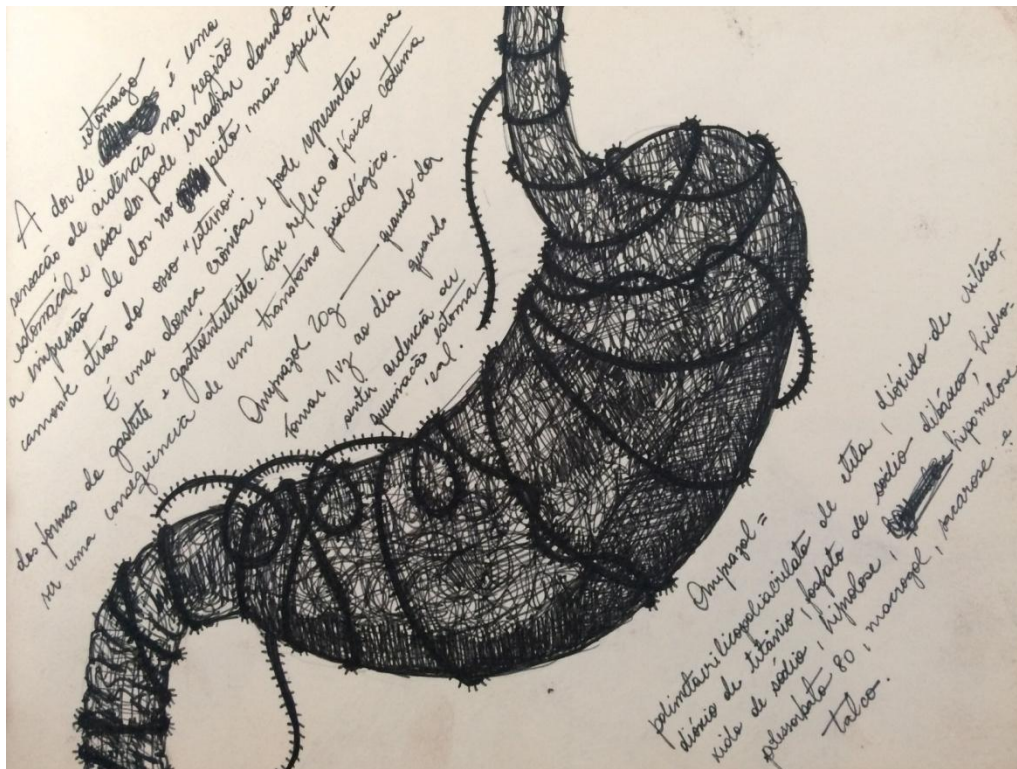 A dor de estômago é uma
sensação de ardência na região
estomacal e essa dor pode irradiar dando
a impressão de dor no peito, mais especifi-
camente atrás do osso "isterno".
É uma doença crônica e pode representar uma
das formas de gastrite e gastroentutite. Esse reflixo físico costuma
ser uma consequência de um transtorno psicológico.
Omiprazol 20g — quando dor
Tomar 1 vez ao dia quando
sentir ardência ou
queimação estoma-
cal.
Omiprazol =
polimetacrilicopoliacrilato de etila, dióxido de silício,
dióxio de titânio, fosfato de sódio dibásico, hidró-
xido de sódio, hipomelose
polissorbato 80, macrogol, sacarose e
talco.